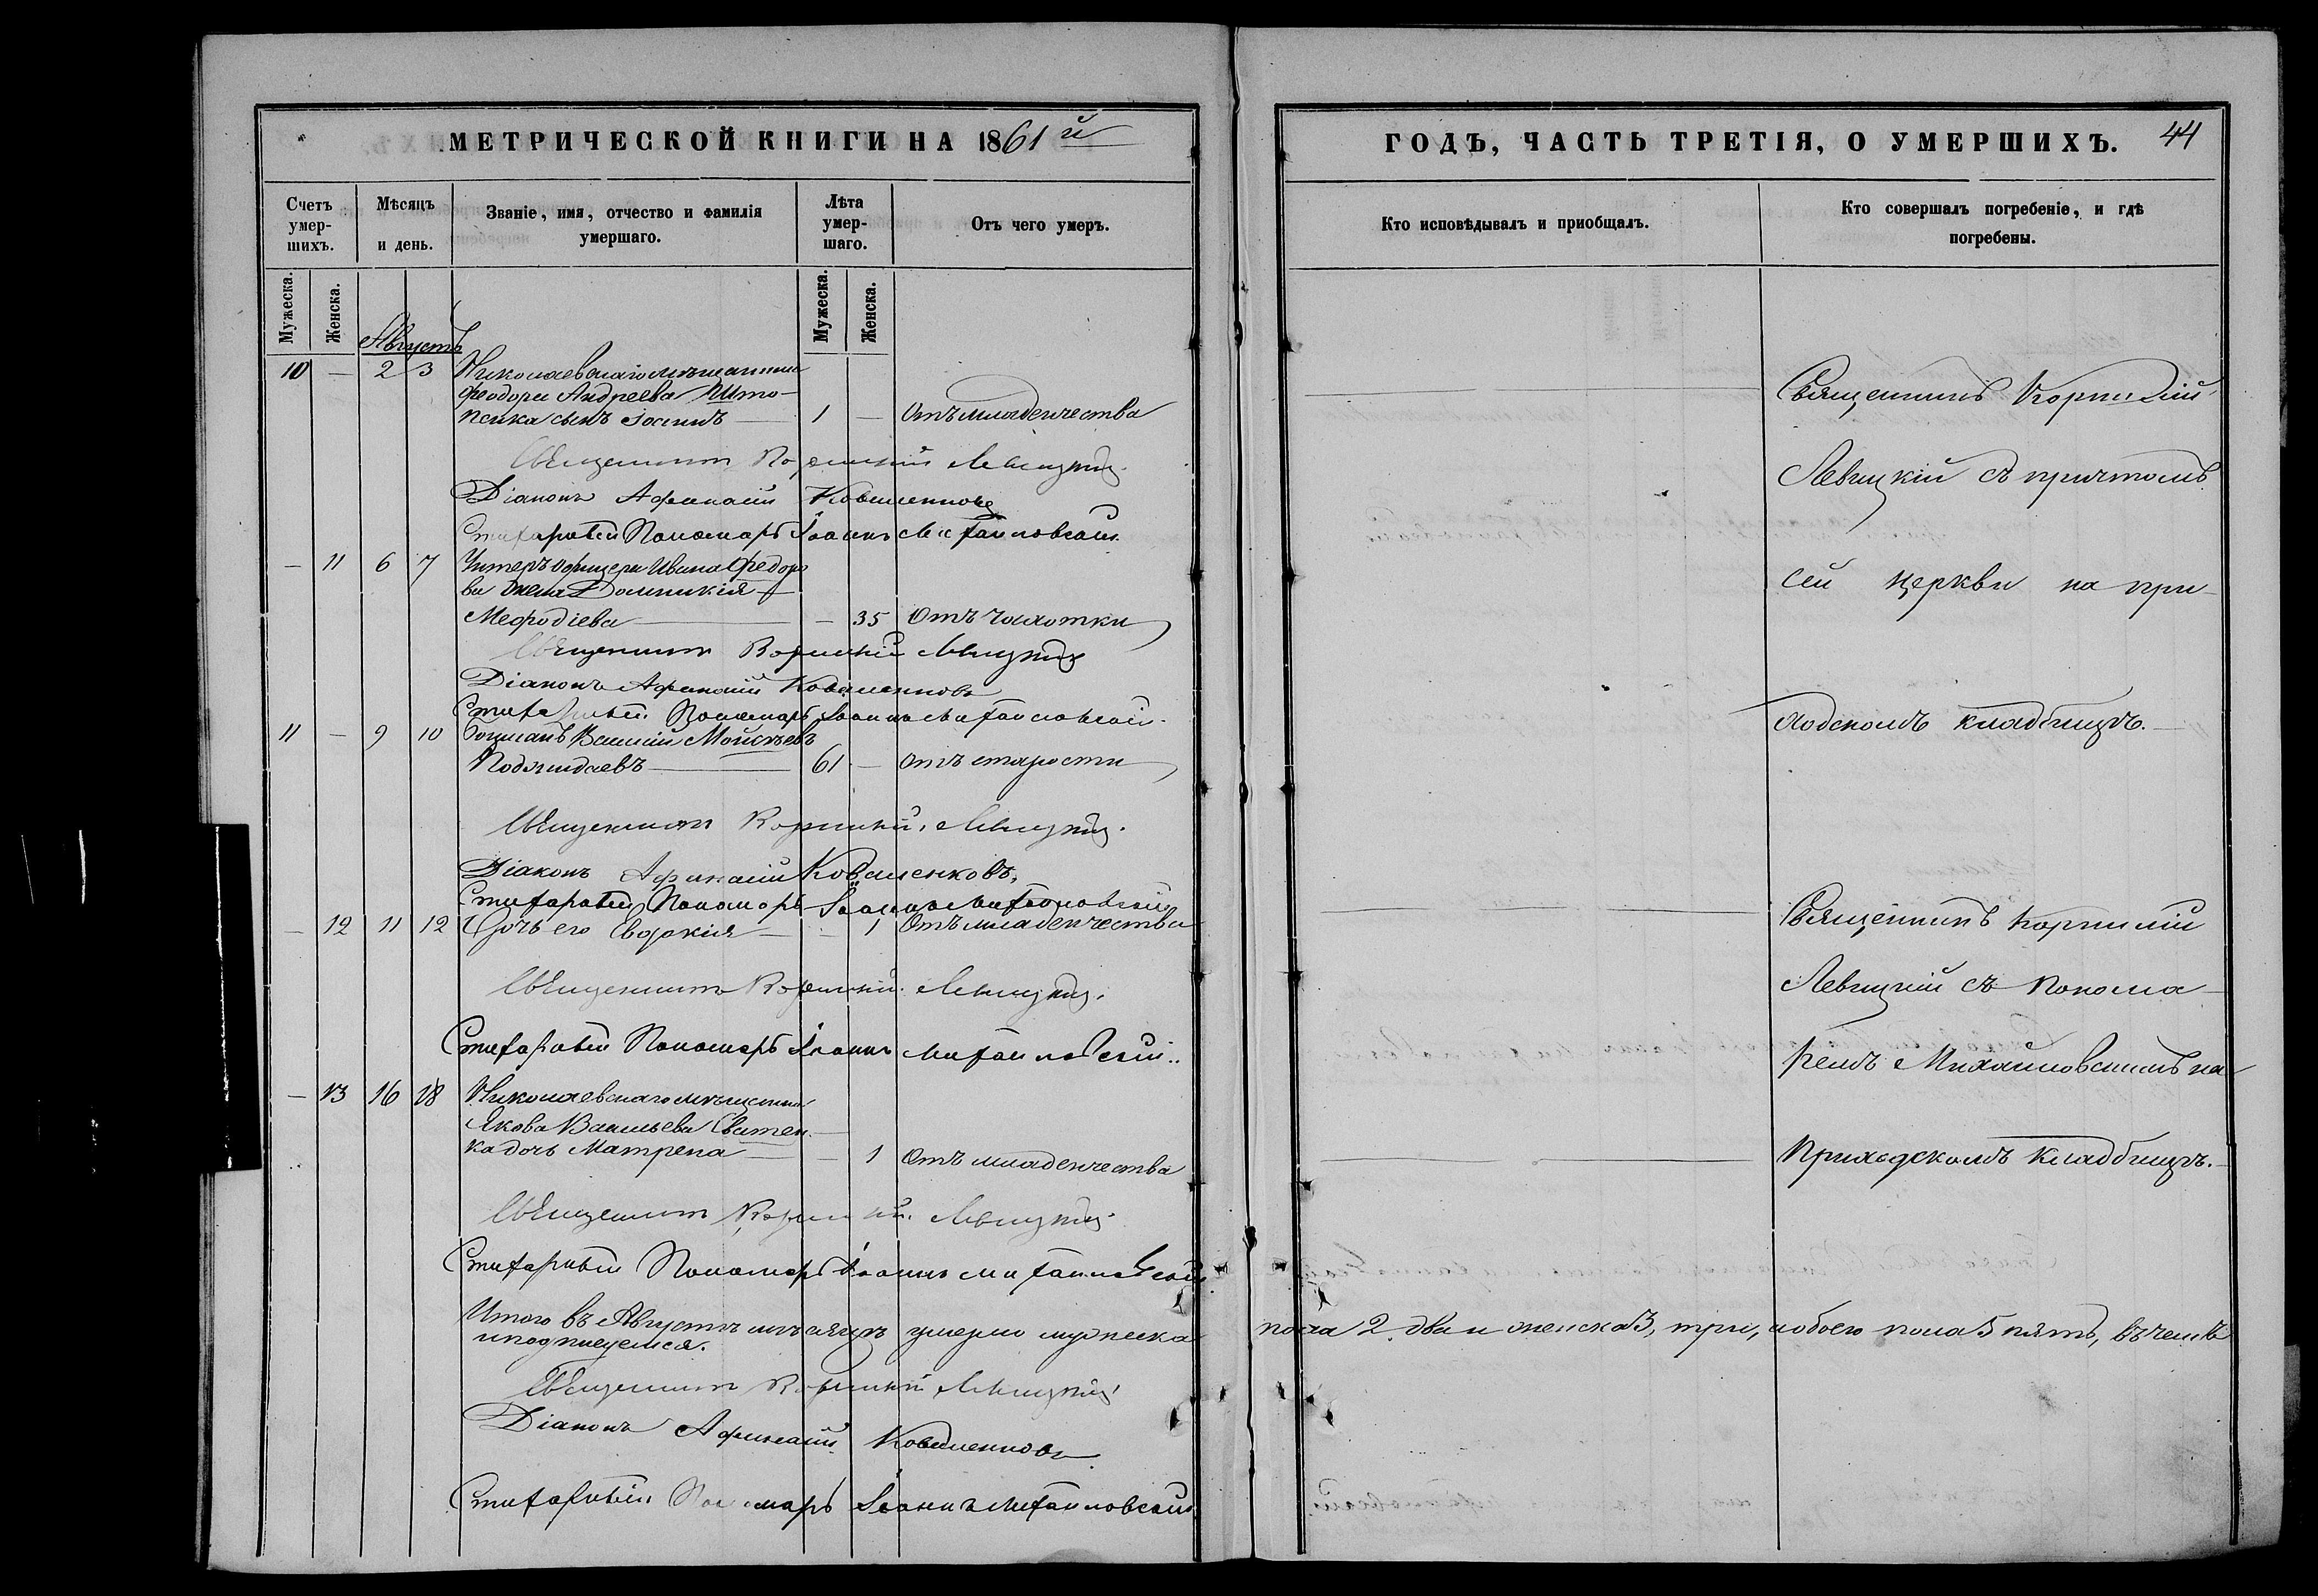 МЕТРИЧЕСКОЙ КНИГИ НА 1861й
Счетъ умер-шихъ.
Мѣсяцъ и день.
Званіе, имя, отчество и фамилія умершаго.
Лѣта умер-шаго.
Отъ чего умеръ.
Мужеска.
Женска.
Мужеска.
Женска.
Августъ
10 — 2 3 Николаевскаго мѣщанина
Феодора Андреева
сынъ Іосифъ — 1 — Отъ младенчества
Священникъ Корнилій Левицкій.
Діаконъ Афанасій Коваленковъ
Стихарный Пономарь Іоаннъ Михайловскій.
— 11 6 7 Унтеръ офицера Ивана Федоро
ва жена Домникія
Мефодіева — — 35 Отъ чахотки
Священникъ Корнилій Левицкій
Діаконъ Афанасій Коваленковъ
Стихарный Пономарь Іоаннъ Михайловскій.
11 — 9 10 Боцманъ Василій Мойсѣевъ
— 61 — отъ старости
Священникъ Корнилій Левицкій.
Діаконъ Афанасій Коваленковъ.
Стихарный Пономарь Іоаннъ Михайловскій
— 12 11 12 Дочь его Евдокія — — 1 Отъ младенчества
Священникъ Корнилій Левицкій.
Стихарный Пономарь Іоаннъ Михайловскій..
— 13 16 18 Николаевскаго мѣщанина
Якова Васильева
ка дочь Матрена — — 1 Отъ младенчества
Священникъ Корнилій Левицкій
Стихарный Пономарь Іоаннъ Михайловскій
Итого въ Августѣ мѣсяцѣ умерло мужеска
и подписуемся.
Священникъ Корнилій Левицкій
Діаконъ Афанасій Коваленковъ.
Стихарный Пономарь Іоаннъ Михайловскій
ГОДЪ, ЧАСТЬ ТРЕТІЯ, О УМЕРШИХЪ. 44
Кто исповѣдывалъ и приобщалъ.
Кто совершалъ погребеніе, и гдѣ погребены.
Священникъ Корнилій
Левицкій съ причтомъ
сей церкви на при-
ходскомъ кладбищѣ.—
Священникъ Корнилій
Левицкій съ Понома-
ремъ Михайловскимъ на
Приходскомъ кладбищѣ.—
пола 2. два и женска 3, три, и обоего пола 5 пять, въ чемъ